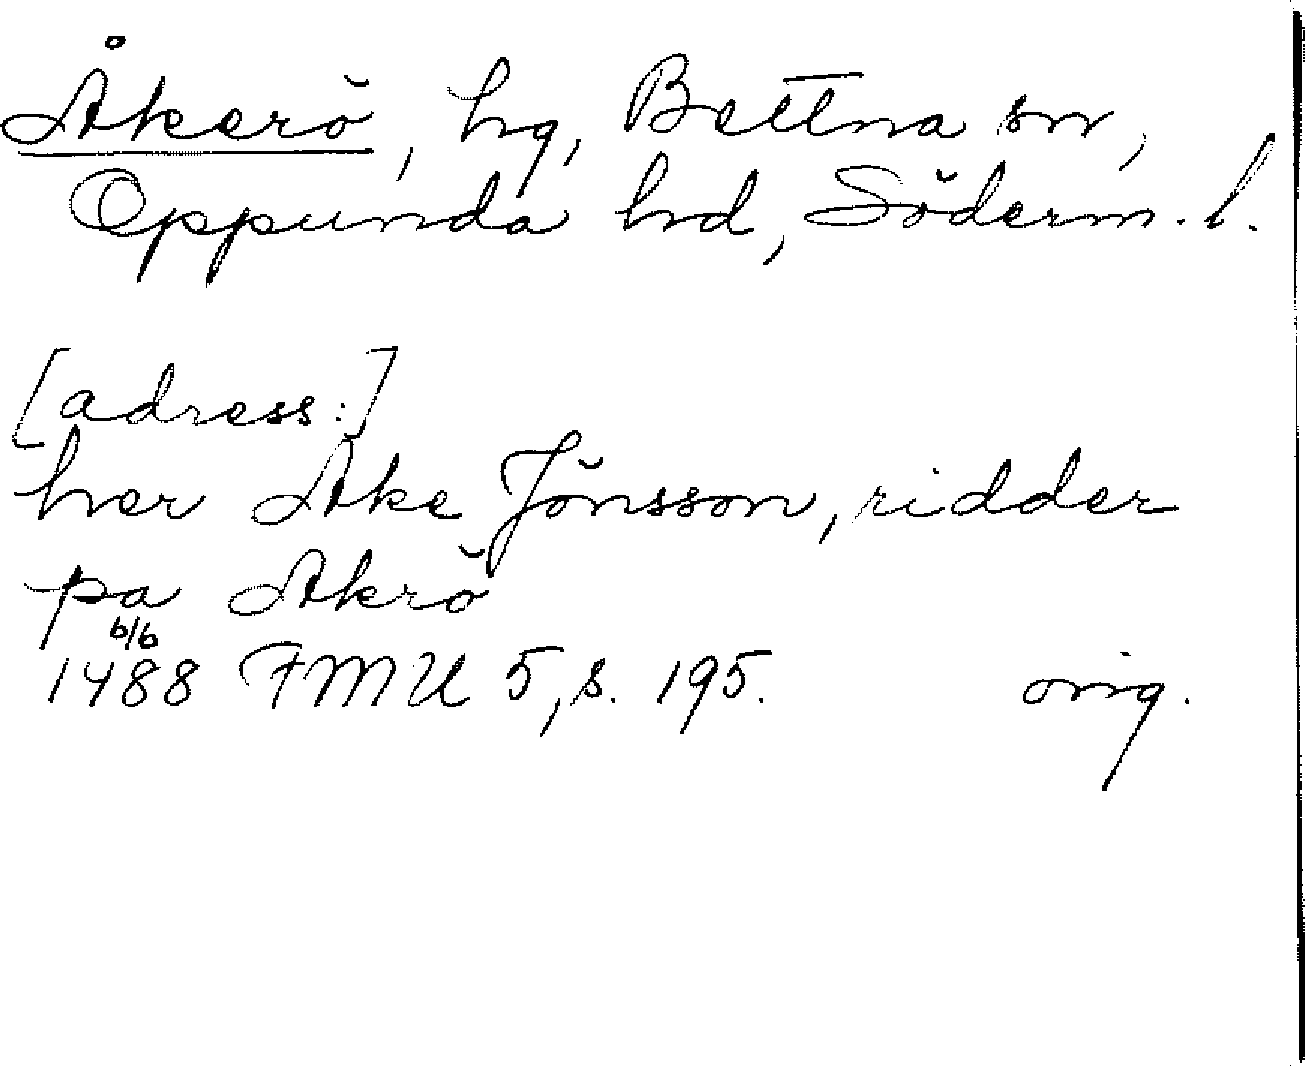 Åkerö, hg, Bettna sn,
Oppunda hd, Söderm. l.
[adress:]
her Ake Jönsson, ridder
pa Akrö
6/6
1488 FMU 5, s. 195. orig.